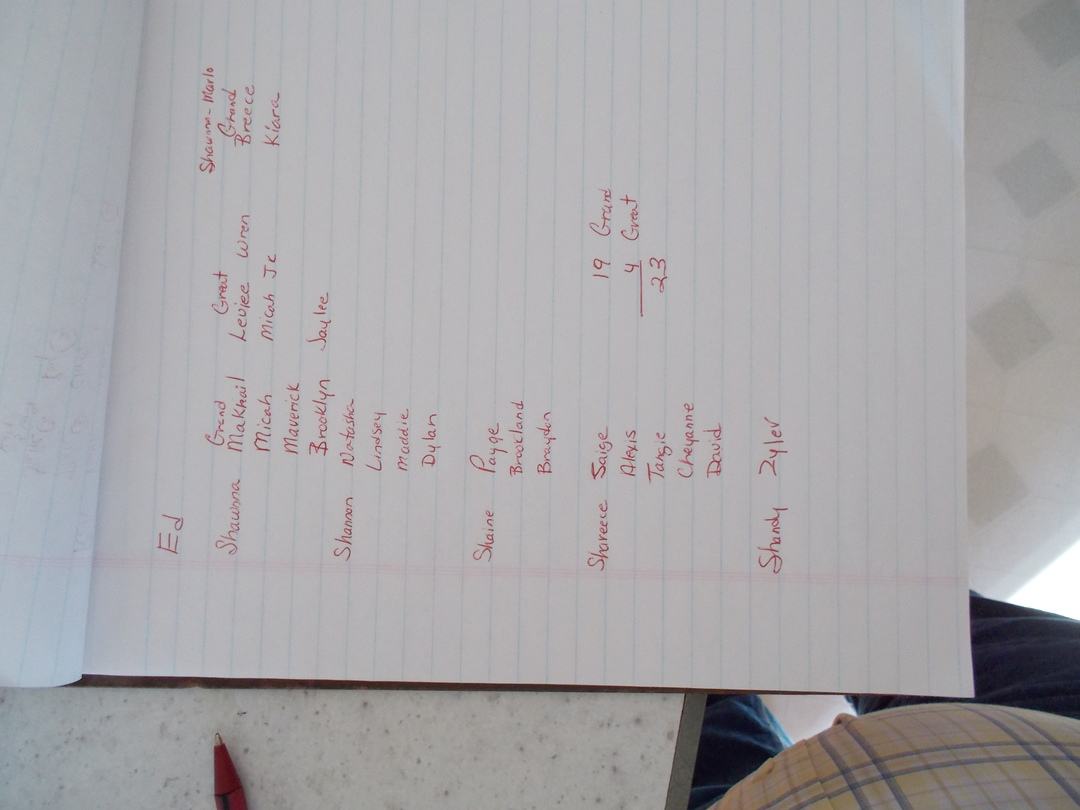 Ed
Shawna-Marlo
Grand Great Grand
Shawnna Makhail Leviee Wren Breece
Micah Micah Jr Kiara
Maverick
Brooklyn Jaylee
Shannon Natasha
Lindsey
Maddie
Dylan
Shaine Payge
Brookland
Braydon
Shareece Saige 19 Grand
Alexis 4 Great
Tangie 23
Cheyanne
David
Shandy Zyler